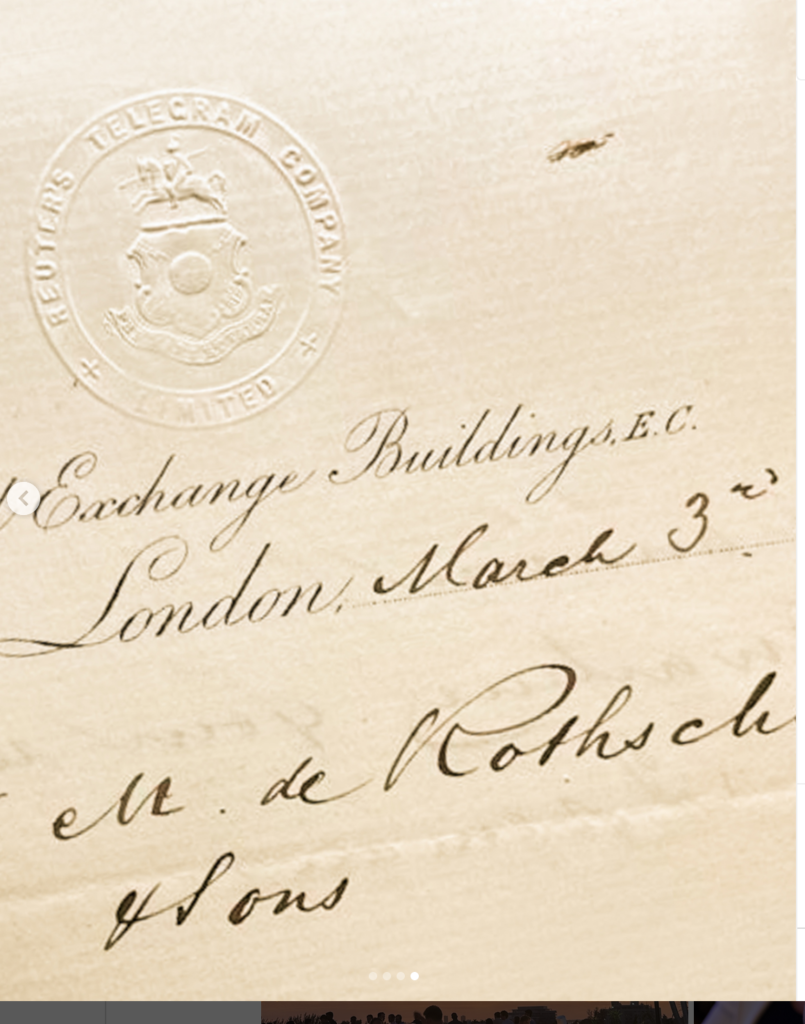 REUTER'S TELEGRAM COMPANY
LIMITED
Exchange Buildings, E.C.
London, March 3rd
M. de Rothsch
& Sons